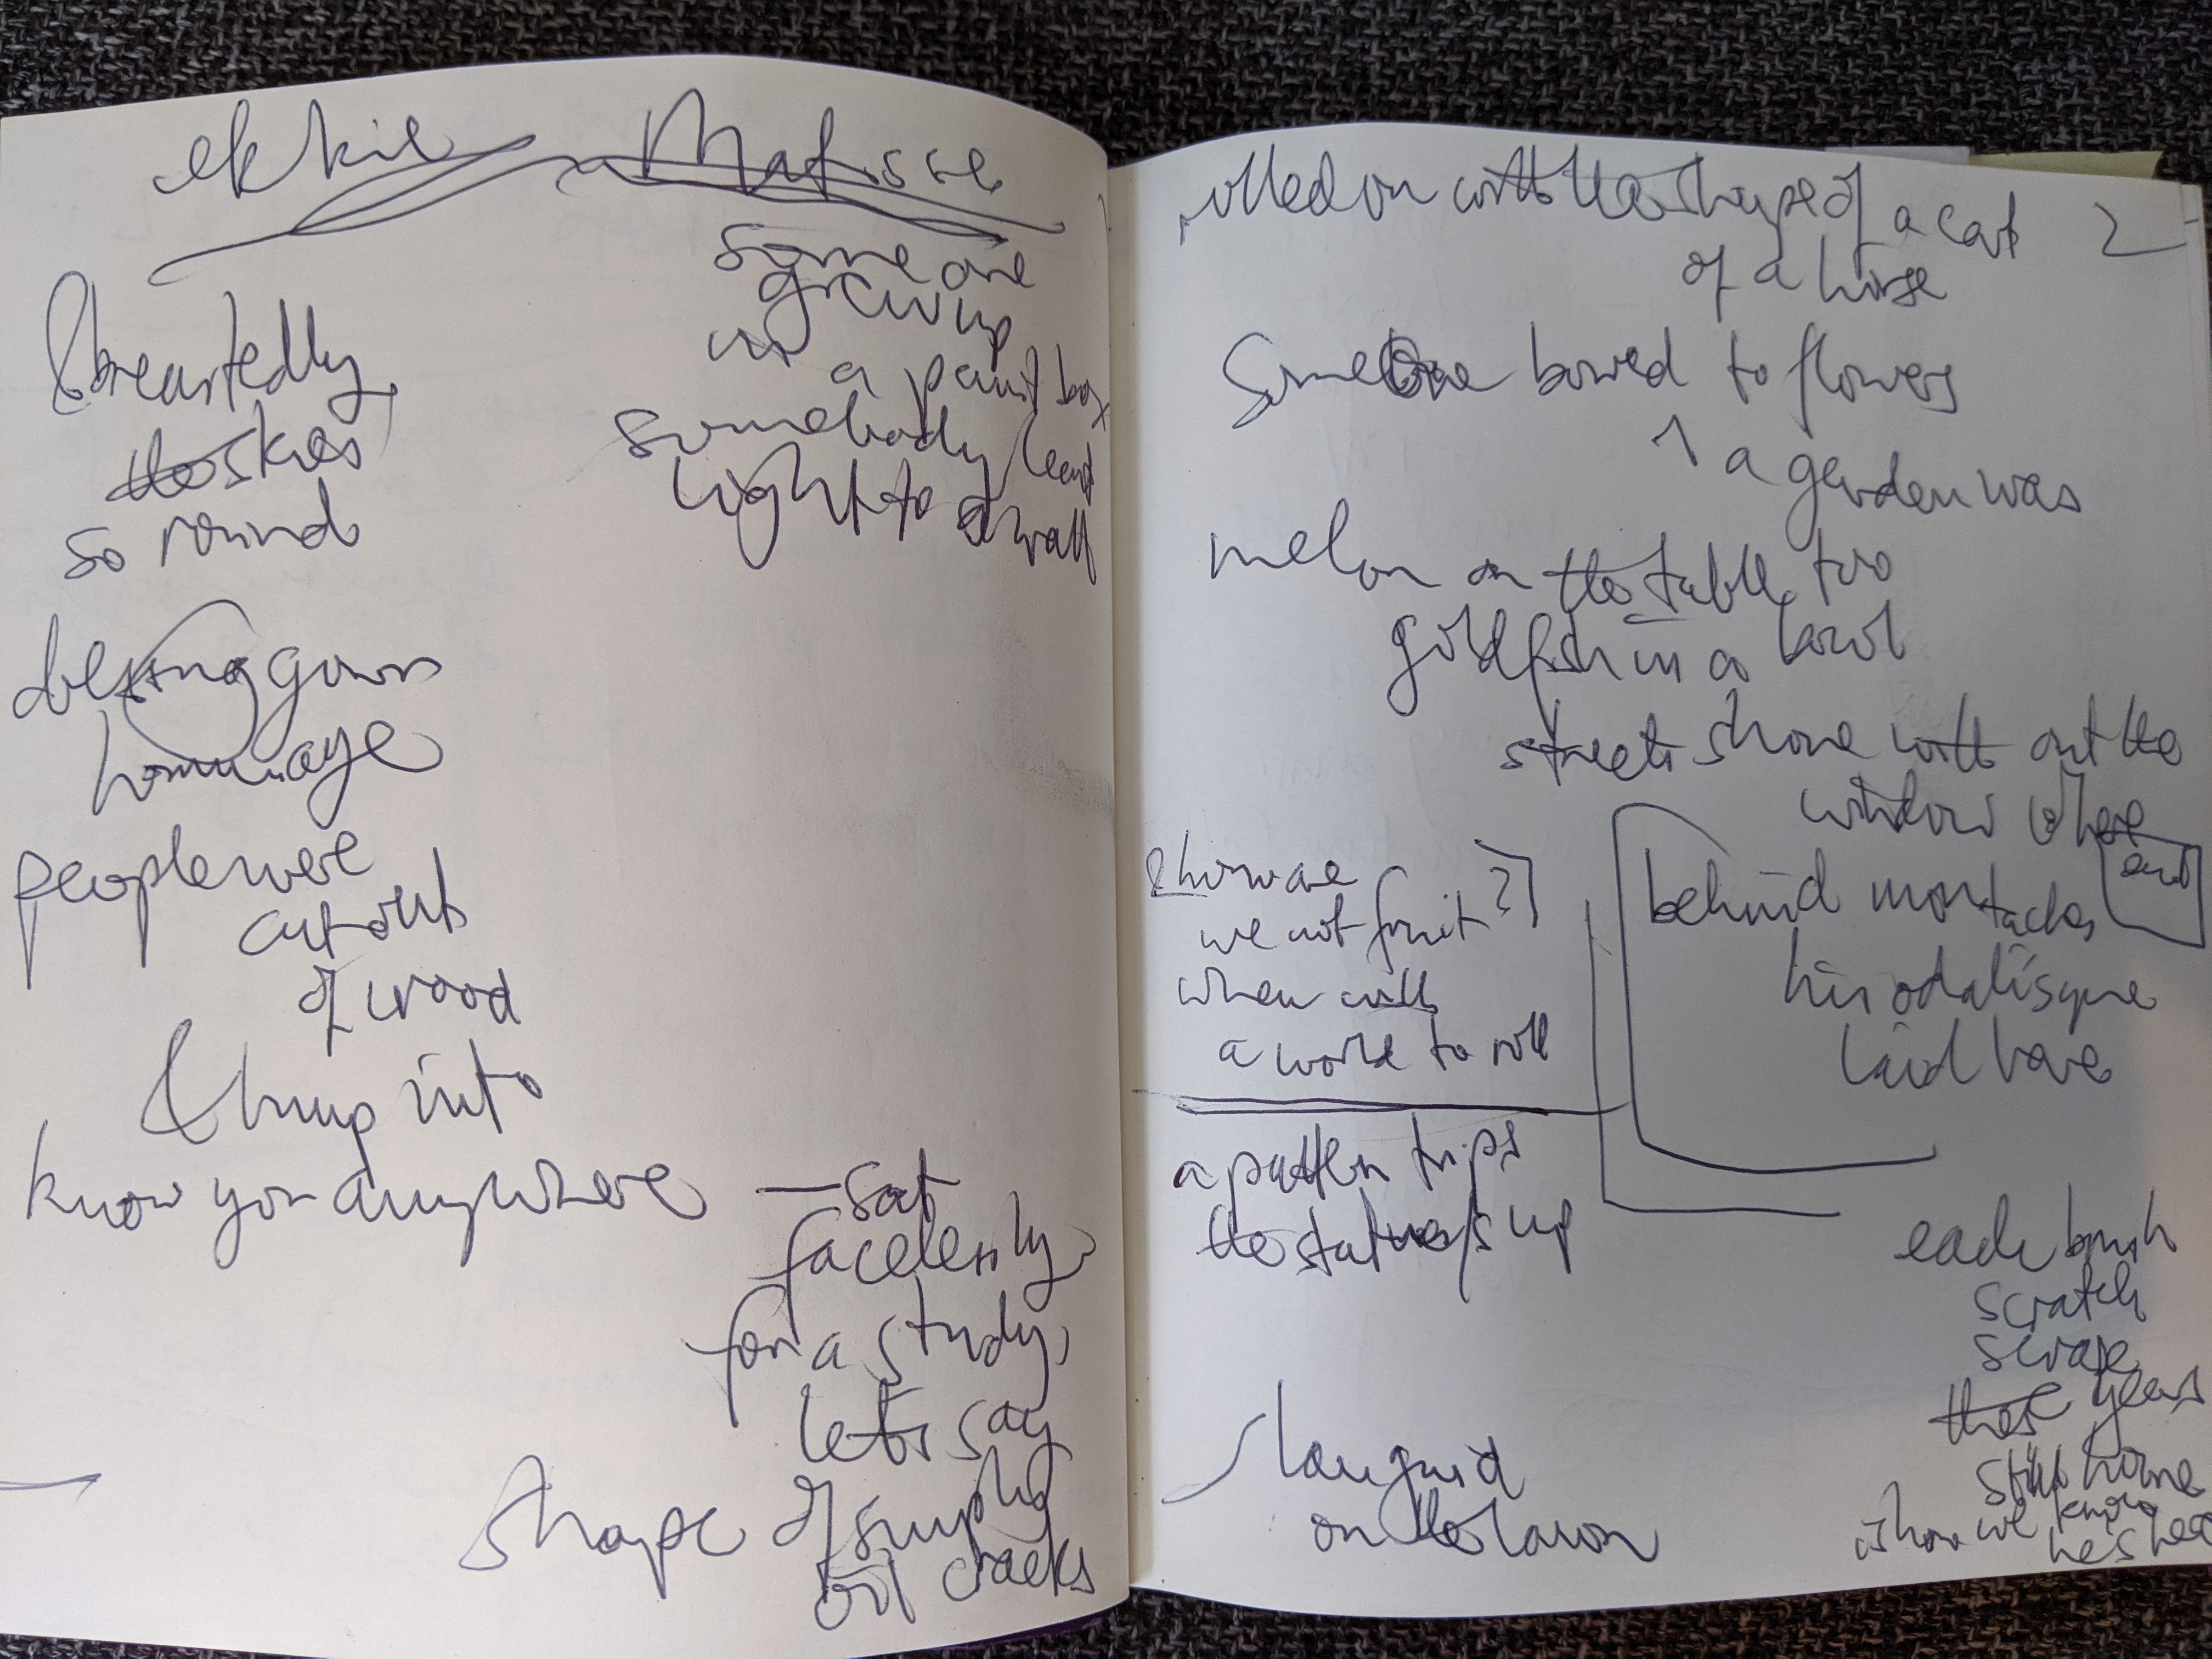 ekkie Matisse
someone
grew up
in
a paint box
somebody leant
light to a wall
& breastedly
the skies
so round
homage
people were
cut outs
of wood
& bump into
know you anywhere
— sat
facelessly
for a study,
let's say
shape of simply
oil cracks
rolled on with the shape of a cat
2
of a horse
Someone bowed to flowers
a garden was
melon on the table too
goldfish in a bowl
streets shone out the
window where
behind moustaches
end
his odalisque
laid bare
& how are
we not fruit ?
when with
a world to roll
a pattern trips
the statues up
each brush
scratch
scrape
these years
still
is how we know
he's here
languid
on the lawn